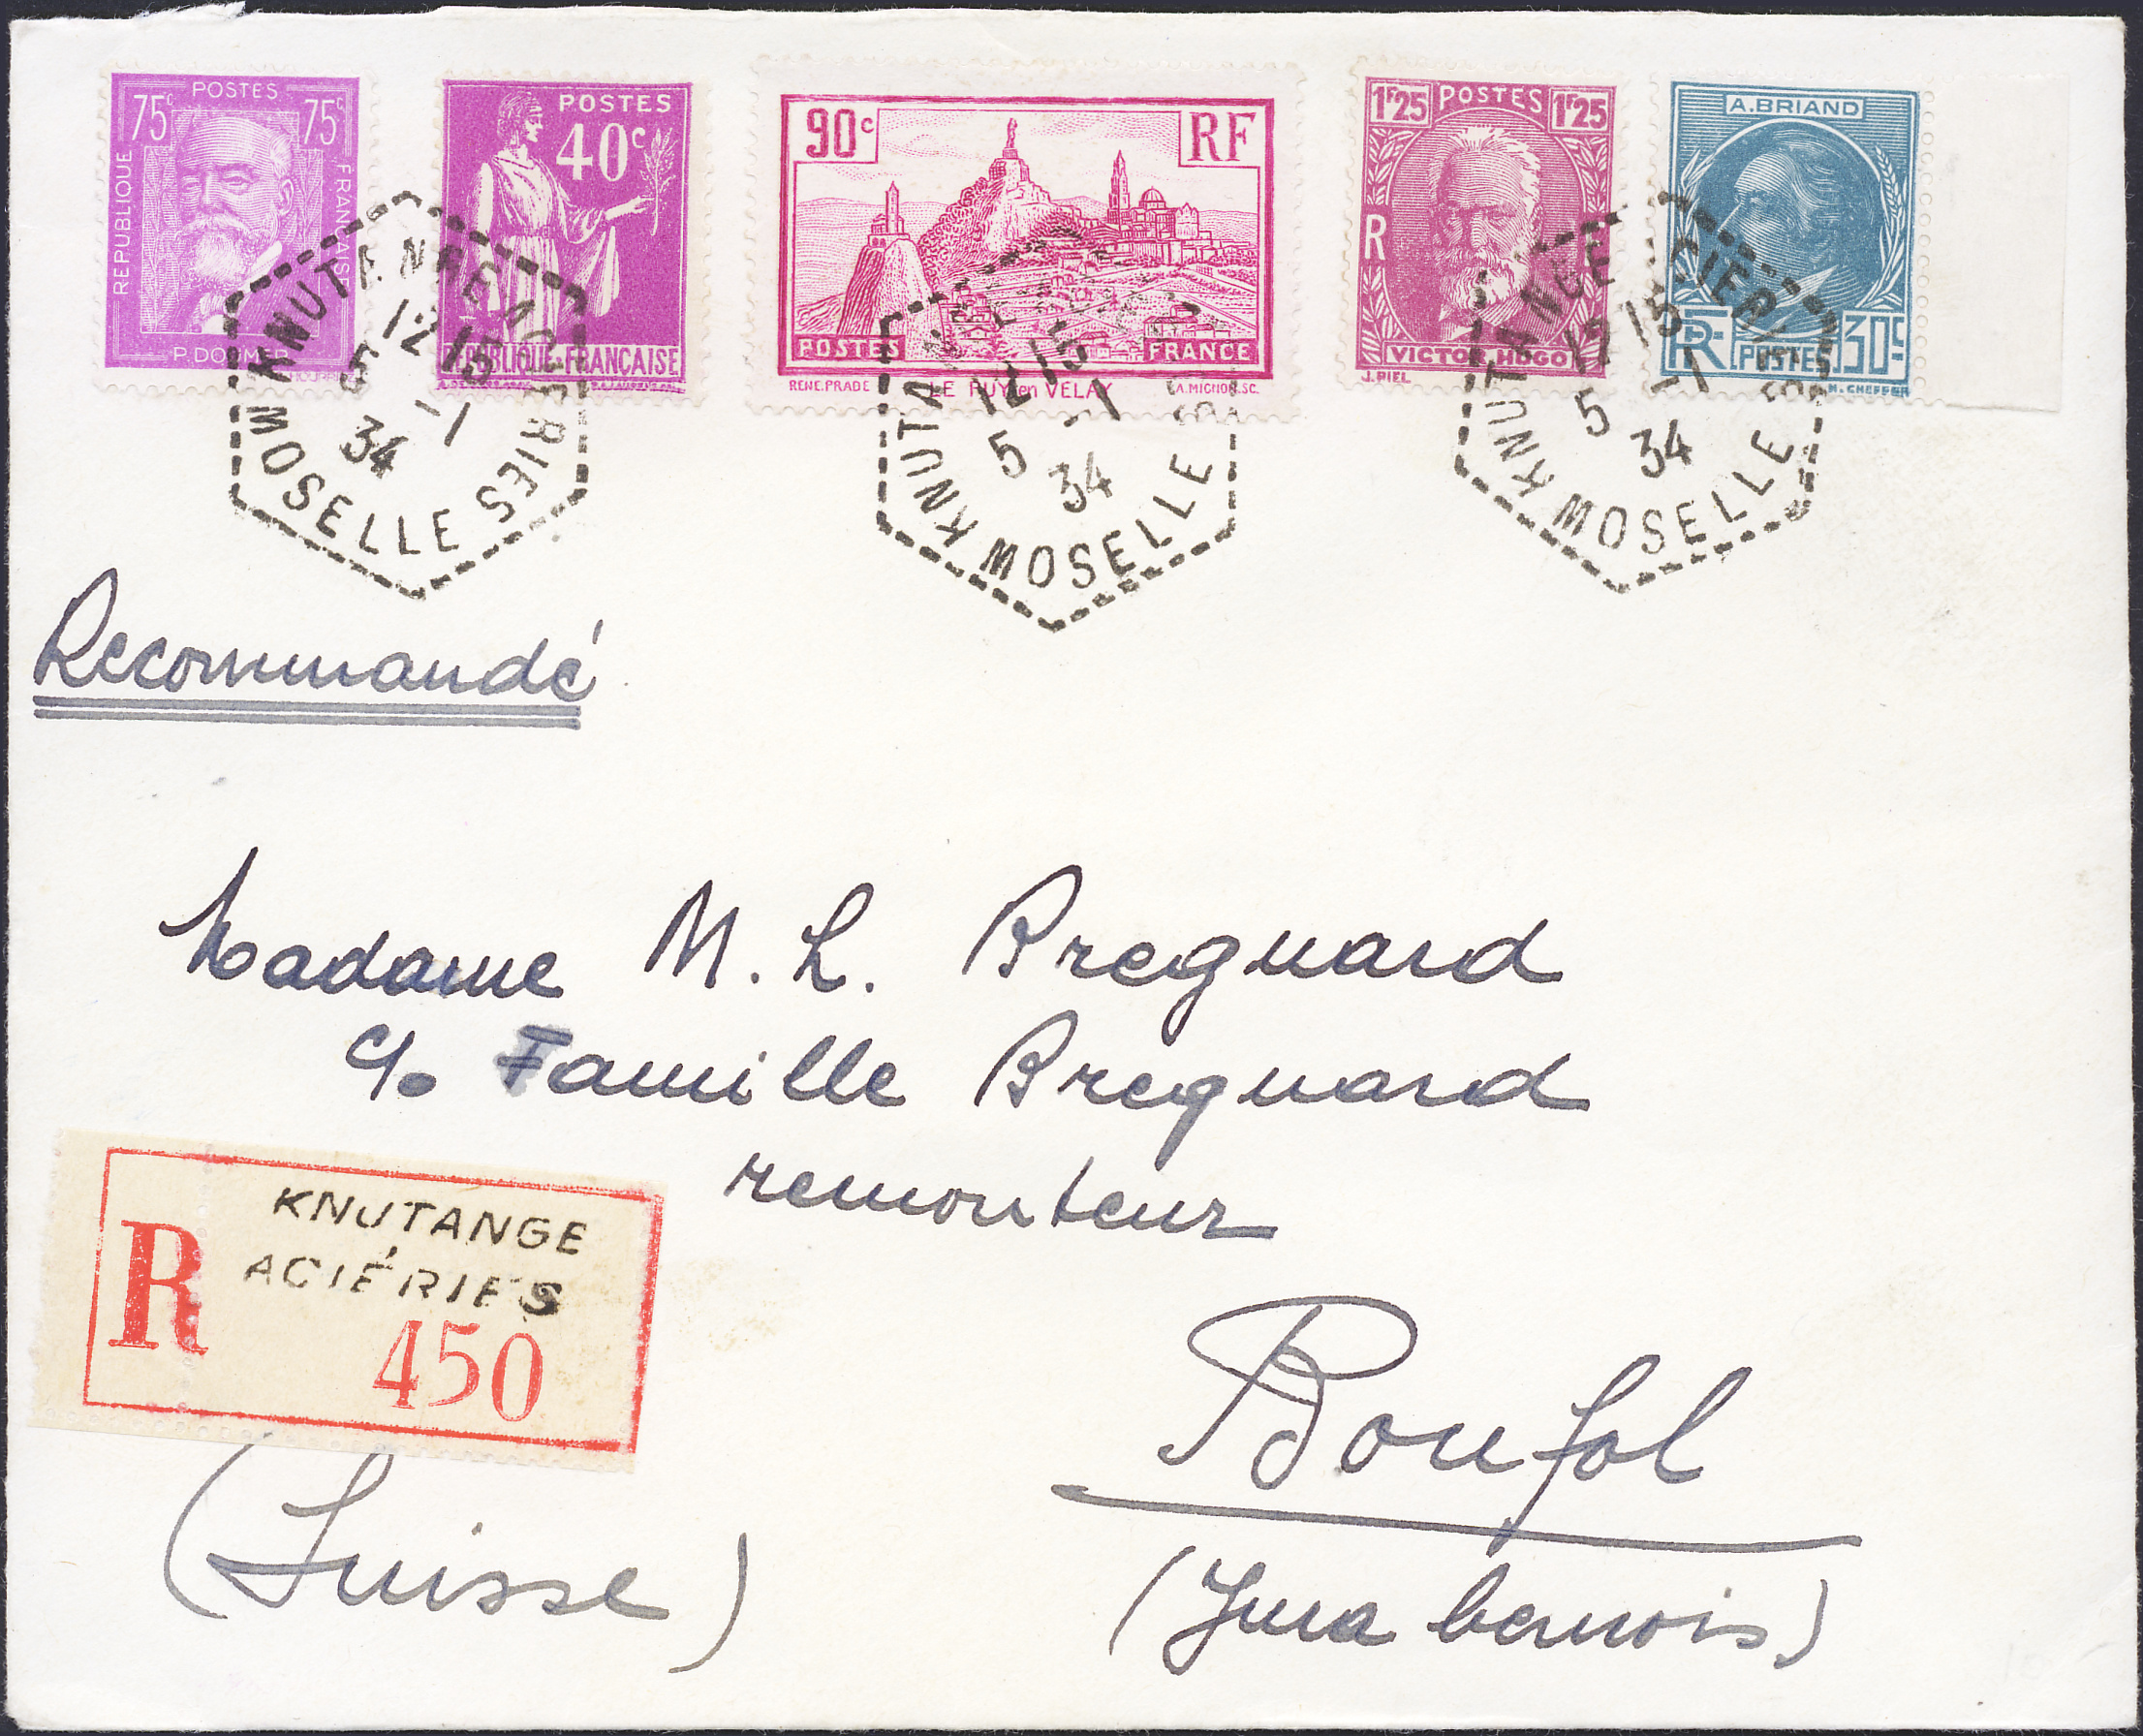 75c POSTES 75c
RÉPUBLIQUE
FRANÇAISE
P. DOUMER
POSTES
40c
RÉPUBLIQUE FRANÇAISE
90c RF
POSTES FRANCE
RENE.PRADE LE PUY en VELAY A.MIGNON.SC.
1F25 POSTES 1F25
R
VICTOR HUGO
J.PIEL
A.BRIAND
RF POSTES 30c
M. CHEFFER
KNUTANGE ACIERIES
12 15
5 -1
34
MOSELLE
KNUTANGE
12 15
5 -1
34
MOSELLE
KNUTANGE ACIERIES
12 15
5 -1
34
MOSELLE
Recommandé
Madame M. L. Breguard
c/o Famille Breguard
remonteur
R KNUTANGE
ACIÉRIES
450
Bonfol
(Suisse)
(Jura bernois)